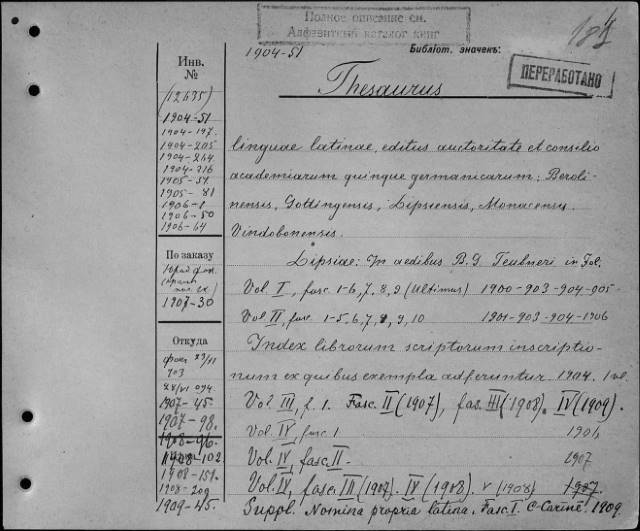 Полное описание см.
Алфавитный каталог книг
184
Библиот. значекъ:
1904-51
ПЕРЕРАБОТАНО
Инв.
№
(12635)
1904-51
1904-197
1904-205
1904-244
1904-216
1905-51
1905-81
1906-8
1906-50
1906-64
По заказу
1907-30
Откуда
1907-45.
1907-98.
1908-96.
1908-102
1908-151.
1908-209
1909-45.
Thesaurus
linguae latinae, editus auctoritate et consilio
academiarum quinque germanicarum: Beroli-
nensis, Gottingensis, Lipsiensis, Monacensis
Vindobonensis.
Lipsiae: In aedibus B. G. Teubneri in Fol.
Vol I, fasc. 1-6, 7, 8, 9 (Ultimus) 1900-903-904-905-
Vol II, fasc. 1-5, 6, 7, 8, 9, 10 1901-903-904-1906
Index librorum scriptorum inscriptio-
num ex quibus exempla adferuntur. 1904. 1 vol.
Vol III, f. 1. Fasc. II (1907), fas. III (1908). IV (1909).
Vol. IV, fasc. 1 1906
Vol. IV, fasc. II - 1907
Vol. IV, fasc. III (1907). IV (1908). V (1908) 1907.
Suppl. Nomina propria latina. Fasc. I. C-Carine. 1909.